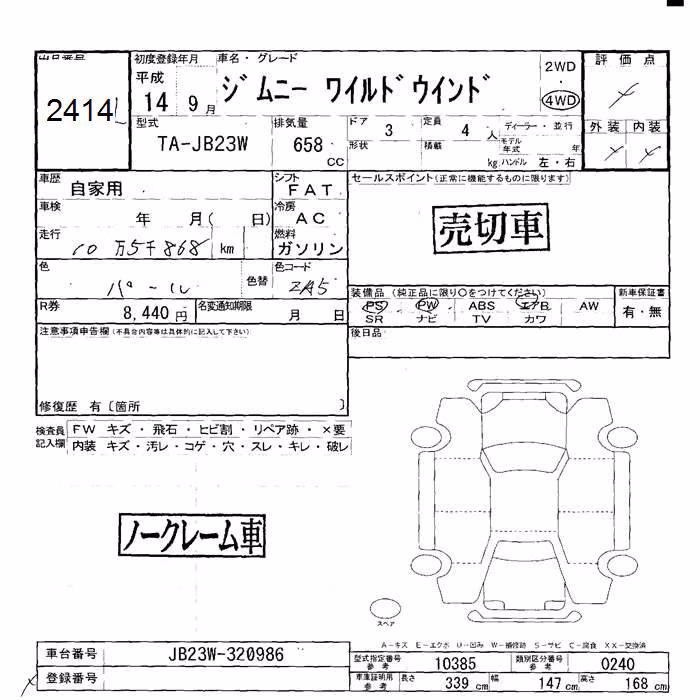 出品番号
2414
初度登録年月
平成
14 9月
車名・グレード
ジムニー ワイルドウインド
2WD
・
4WD
評価点
型式
TA-JB23W
排気量
658
cc
ドア 3
定員 4 人
ディーラー・並行
形状
積載 kg
モデル年式 年
ハンドル 左・右
外装 内装
車歴 自家用
シフト FAT
セールスポイント(正常に機能するものに限ります)
車検 年 月( 日)
冷房 AC
売切車
走行 10万5千868 km
燃料 ガソリン
色 パール
色替
色コード ZA5
装備品(純正品に限り○をつけてください)
新車保証書
PS PW ABS エアB AW
有・無
SR ナビ TV カワ
R券 8,440円
名変通知期限 月 日
後日品
注意事項申告欄(不具合内容等は具体的に記入して下さい)
修復歴 有〔箇所 〕
検査員記入欄
FW キズ・飛石・ヒビ割・リペア跡・×要
内装 キズ・汚レ・コゲ・穴・スレ・キレ・破レ
ノークレーム車
スペア
A-キズ E-エクボ U-凹み W-補修跡 S-サビ C-腐食 XX-交換済
車台番号 JB23W-320986
登録番号
型式指定番号参考 10385
類別区分番号参考 0240
車庫証明用参考 長さ 339 cm 幅 147 cm 高さ 168 cm